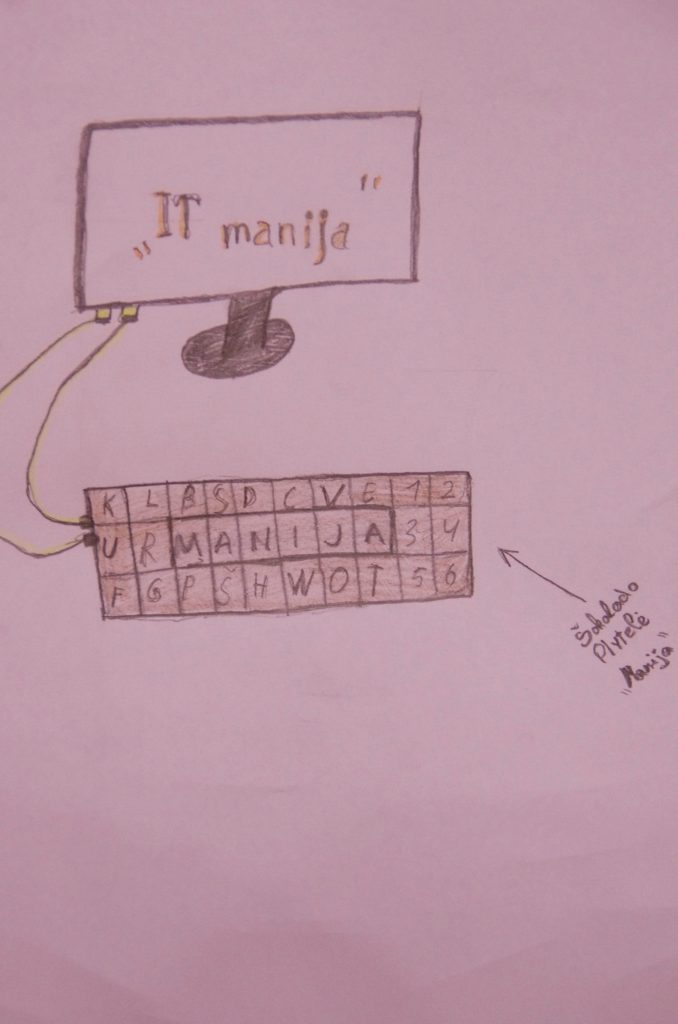 „IT manija"
K L B S D C V E 1 2
U R M A N I J A 3 4
F G P Š H W O T 5 6
Šokolado
Plytelė
„Manija"